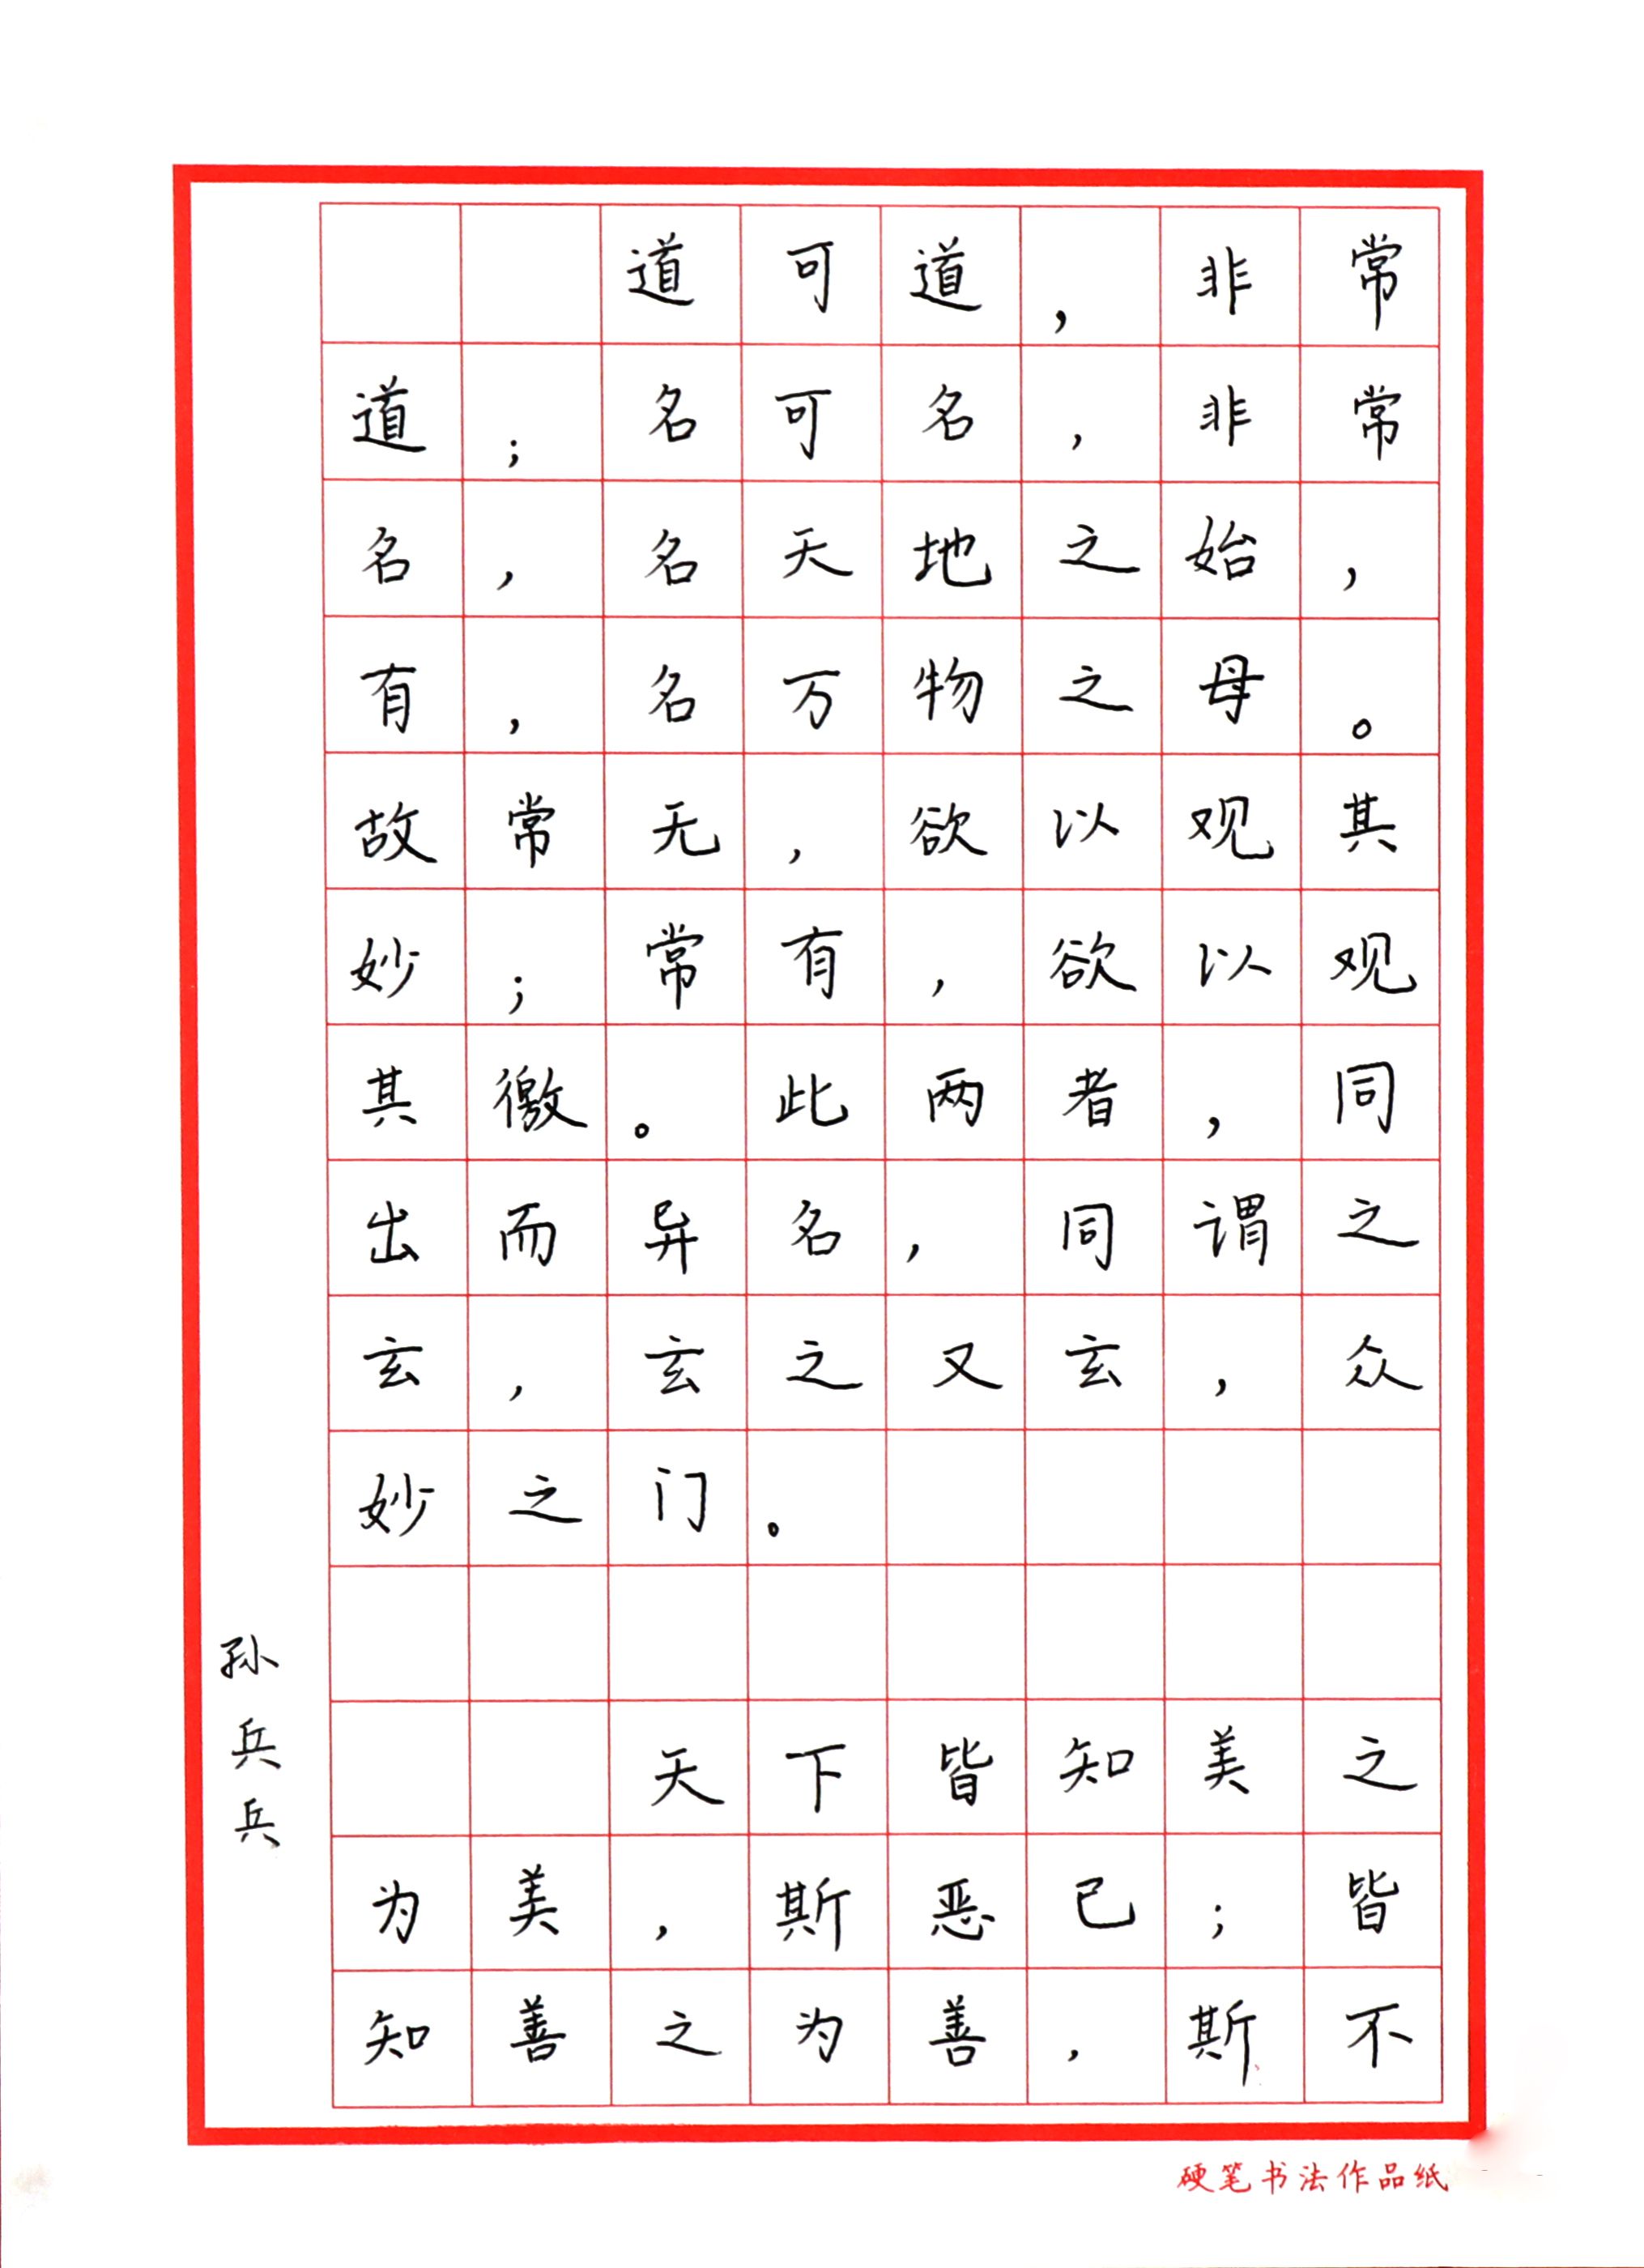 道可道，非常
道；名可名，非常
名，名天地之始，
有，名万物之母。
故常无，欲以观其
妙；常有，欲以观
其徼。此两者，同
出而异名，同谓之
玄，玄之又玄，众
妙之门。
天下皆知美之
为美，斯恶已；皆
知善之为善，斯不
孙兵兵
硬笔书法作品纸